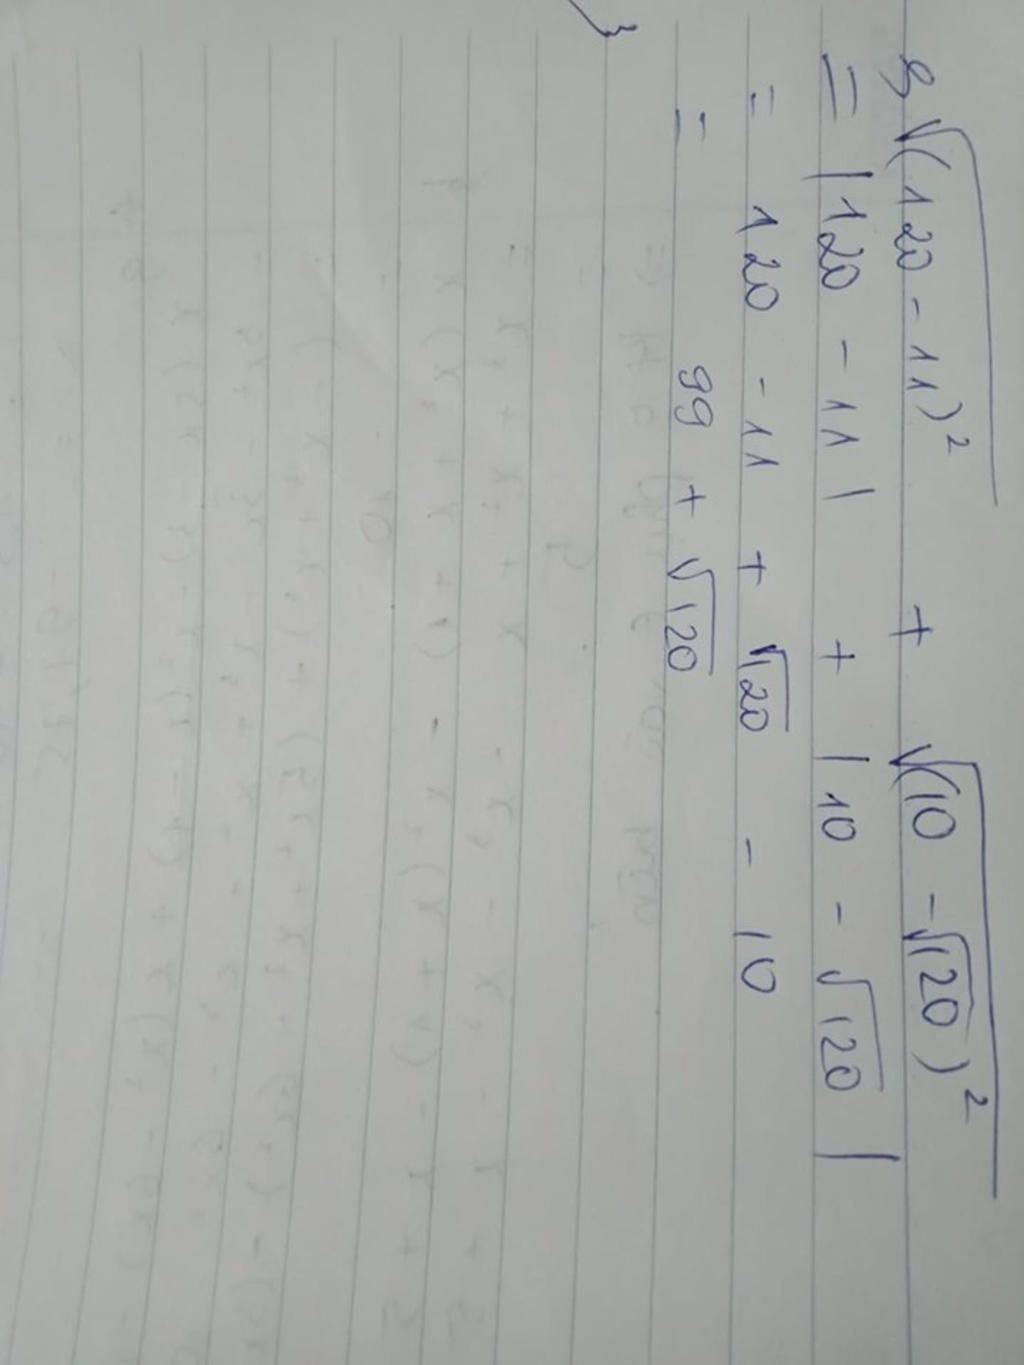 g √(120 - 11)² + √(10 - √120)²
= |120 - 11| + |10 - √120|
= 120 - 11 + √120 - 10
= 99 + √120